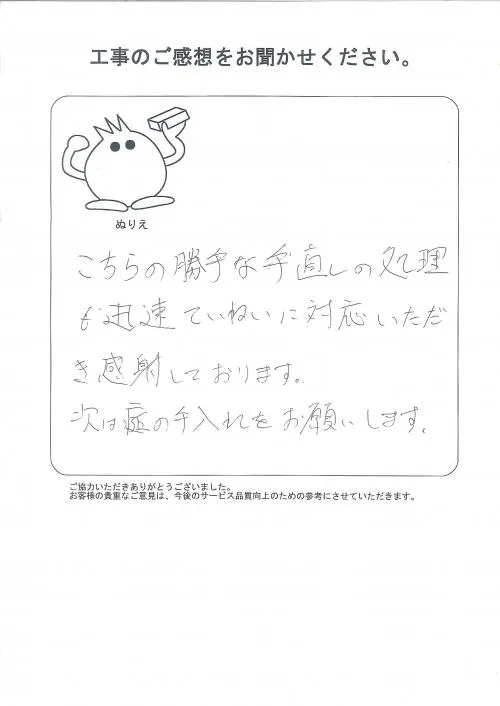 工事のご感想をお聞かせください。
ぬりえ
こちらの勝手な手直しの処理
も迅速ていねいに対応いただ
き感射しております。
次は庭の手入れをお願いします。
ご協力いただきありがとうございました。
お客様の貴重なご意見は、今後のサービス品質向上のための参考にさせていただきます。